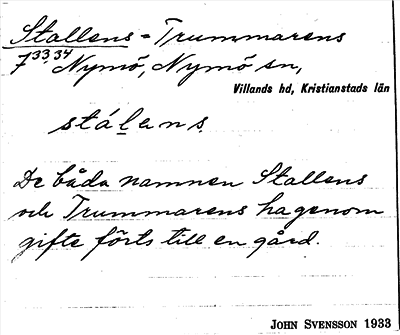 Stallens - Trummarens
7 33,34 Nymö, Nymö sn,
Villands hd, Kristianstads län
stálans.
De båda namnen Stallens
och Trummarens ha genom
gifte förts till en gård.
JOHN SVENSSON 1933